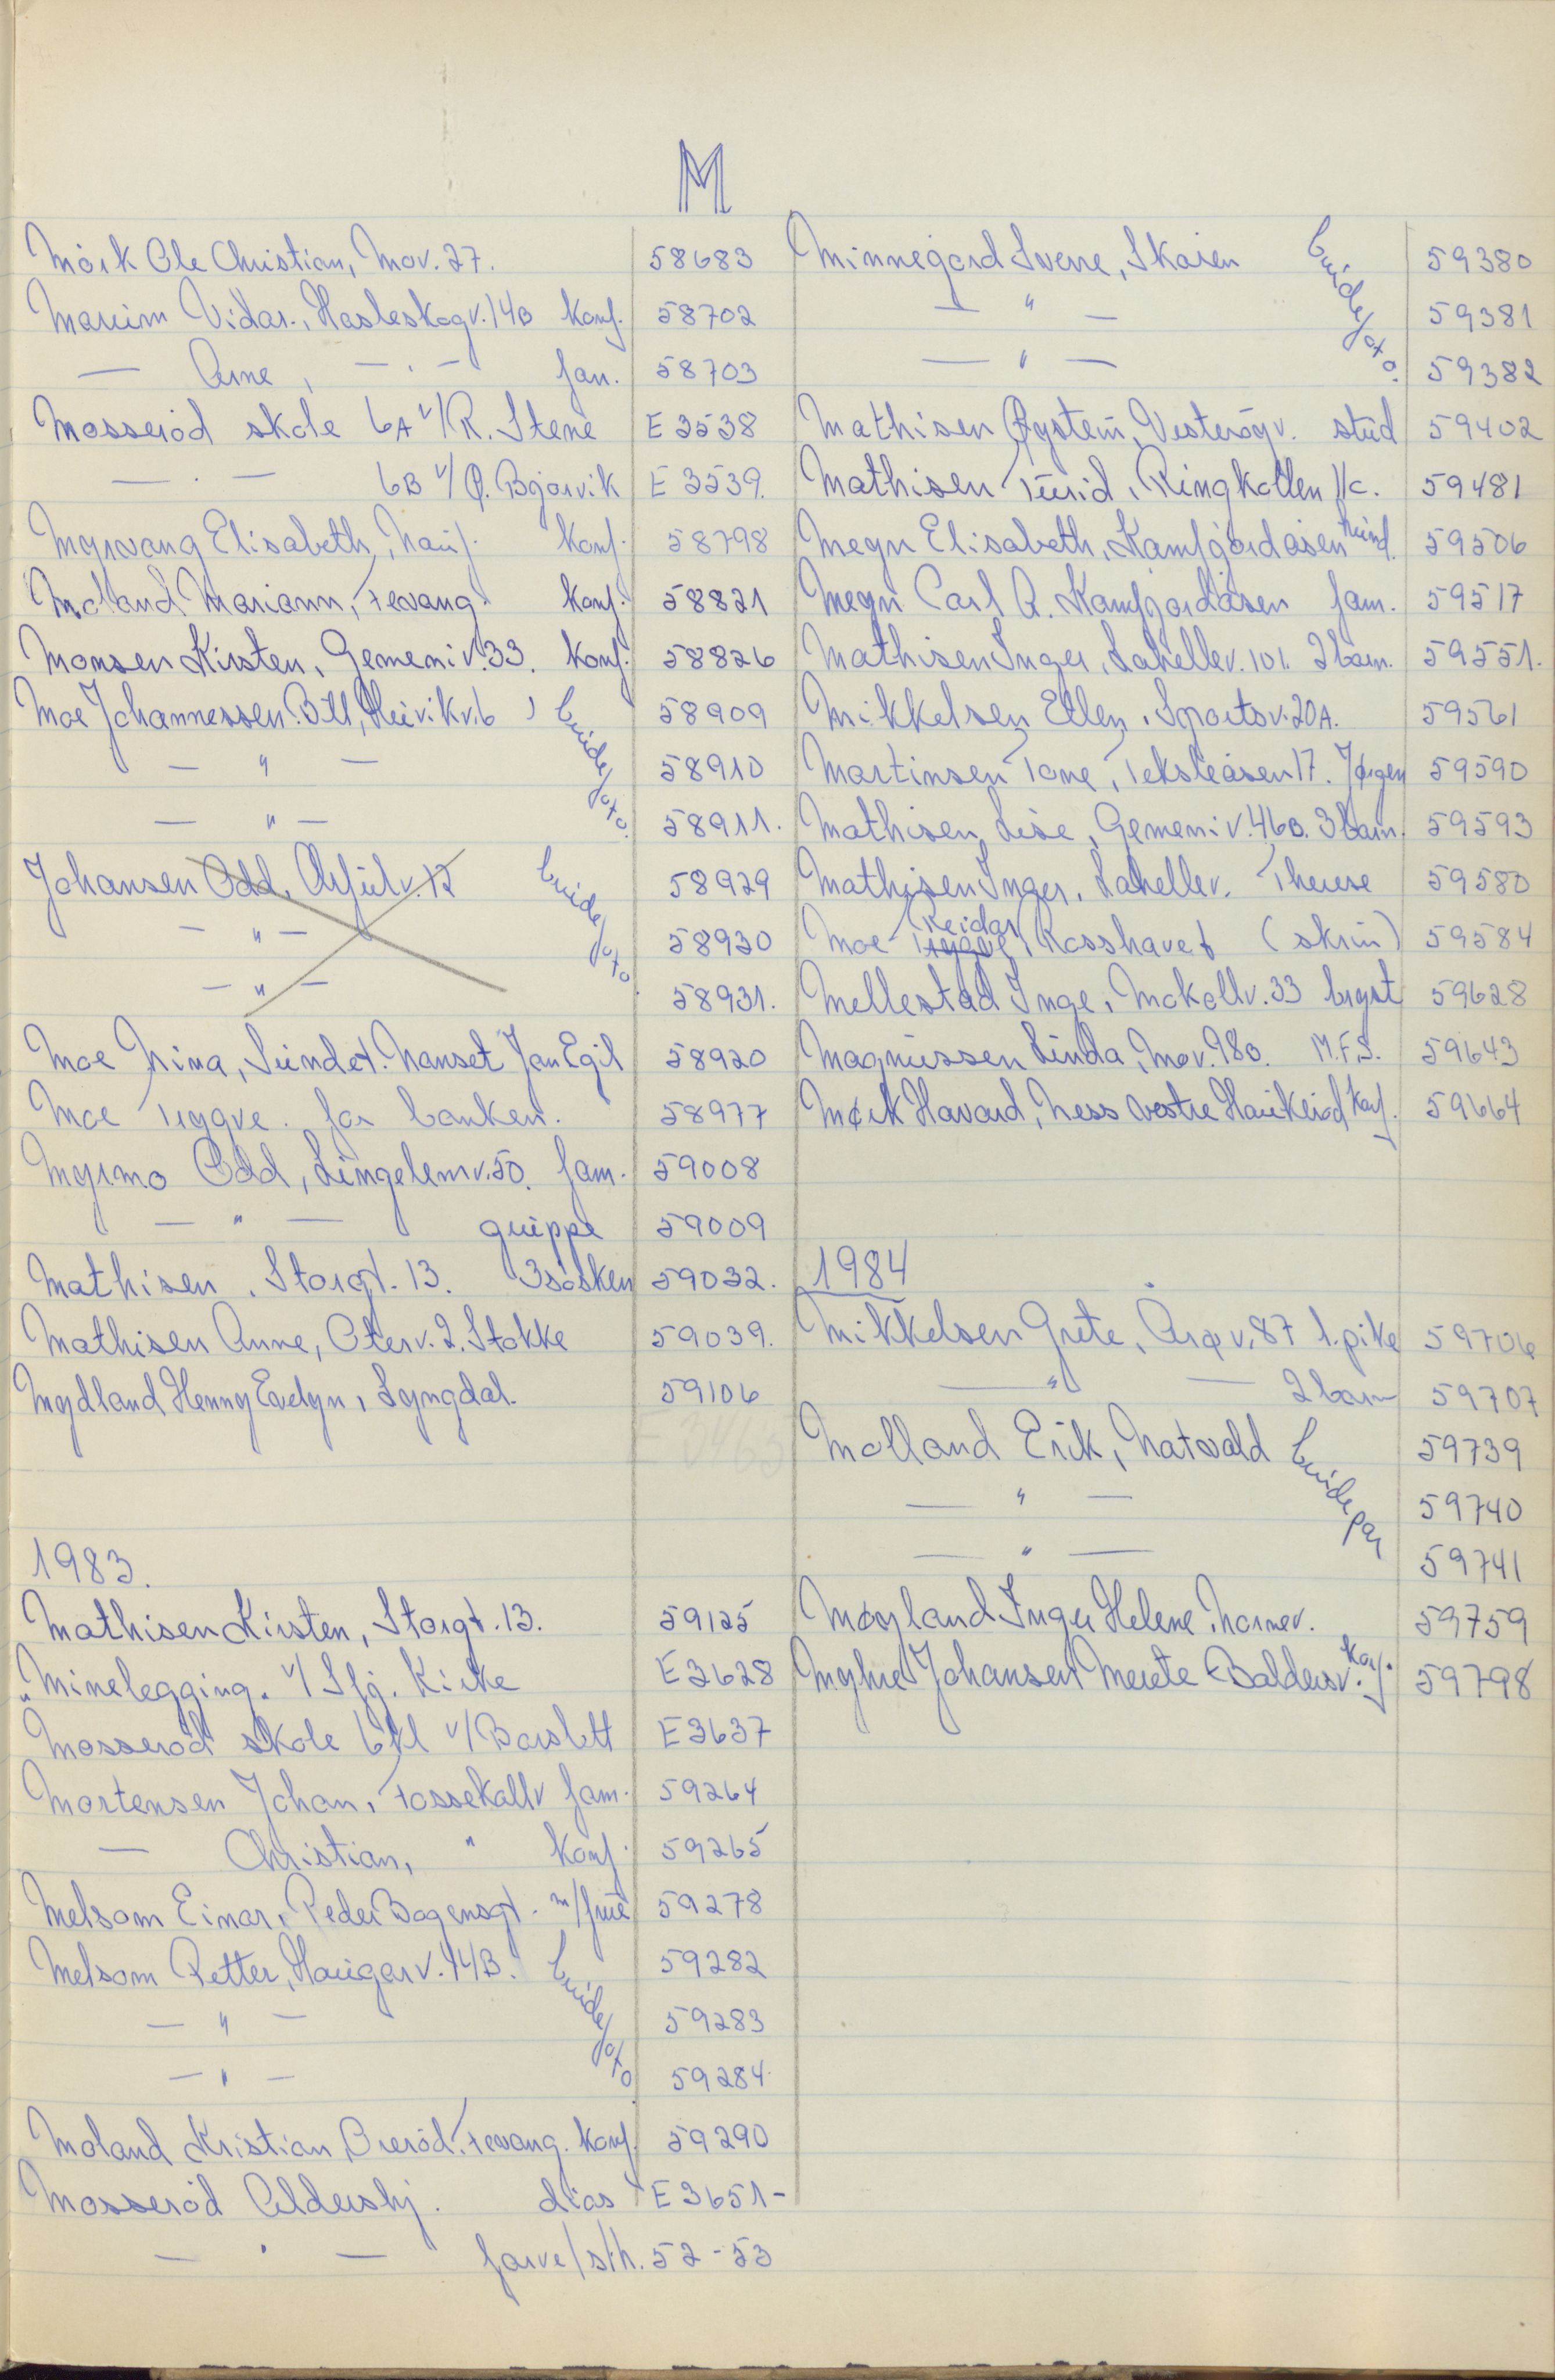 M
Mörk Ole Christian, Mov. 27. 58683
Marum Vidar, Hasleskogv. 14B konf. 58702
— Arne, — " — fam. 58703
Mosseröd skole 6A v/R. Stene E 3538
— " — 6B v/ Ø. Bjørvik E 3539.
Myrvang Elisabeth, Nauf. konf. 58798
Moland Mariann, Fevang konf. 58821
Monsen Kirsten, Gemeniv. 33. konf. 58826
Moe Johannessen Btl, Huvikv. 6 58909
brudefoto
— " — 58910
— " — 58911.
Johansen Odd, 58929
brudefoto
— " — 58930
— " — 58931.
Moe Nina, Sundet. Nanset Jan Egil 58920
Moe Tryggve. for banken. 58977
Myrmo Odd, Lingelemv. 50. fam. 59008
— " — gruppe 59009
Mathisen, Storgt. 13. 3 søsken 59032.
Mathisen Anne, Oterv. 2. Stokke 59039.
Mydland Henny Evelyn, Lyngdal. 59106
E 3463
1983.
Mathisen Kirsten, Storgt. 13. 59125
"Minelegging" v/ Sfj. Kirke E 3628
Mosseröd skole 6 kl v/Barslett E 3637
Mortensen Johan, Fossekallv fam. 59264
— Christian, " konf. 59265
Melsom Einar, Peder Bogensgt. m/frue 59278
Melsom Petter, Haugarv. 14B. 59282
brudefoto
— " — 59283
— " — 59284
Moland Kristian, Breröd, Fevang. konf. 59290
Mosseröd Aldershj. dias E 3651-
— " — farve/s/h. 52-53
Minnegård Sverre, Skåsen 59380
brudefoto.
— " — 59381
— " — 59382
Mathisen Øystein, Vesterøyv. stud 59402
Mathisen Turid, Ringkollen 11c. 59481
Megn Elisabeth, Kamfjordåsen 59506
Megn Carl A. Kamfjordåsen fam. 59517
Mathisen Inger, Lahellev. 101. 2 barn. 59551.
Mikkelsen Ellen, Sportsv. 20A. 59561
Martinsen Tone, Teksleåsen 17. Jørgen 59590
Mathisen Lise, Gemeniv. 46B. 3 barn. 59593
Mathisen Inger, Lahellev. Therese 59580
Moe Tryggve Reidar, Rosshavet (skrin) 59584
Mellestad Inge, Mokollv. 33 bryst 59628
Magnussen Linda, Mov. 98B. M.F.S. 59643
Mørk Havard, Ness vestre Haukeröd konf. 59664
1984
Mikkelsen Grete, Årøv. 87 1. pike 59706
— " — 2 barn 59707
Molland Erik, Natvald 59739
brudepar
— " — 59740
— " — 59741
Møyland Inger Helene, Nornev. 59759
Myhre Johansen Merete Baldersv. konf. 59798